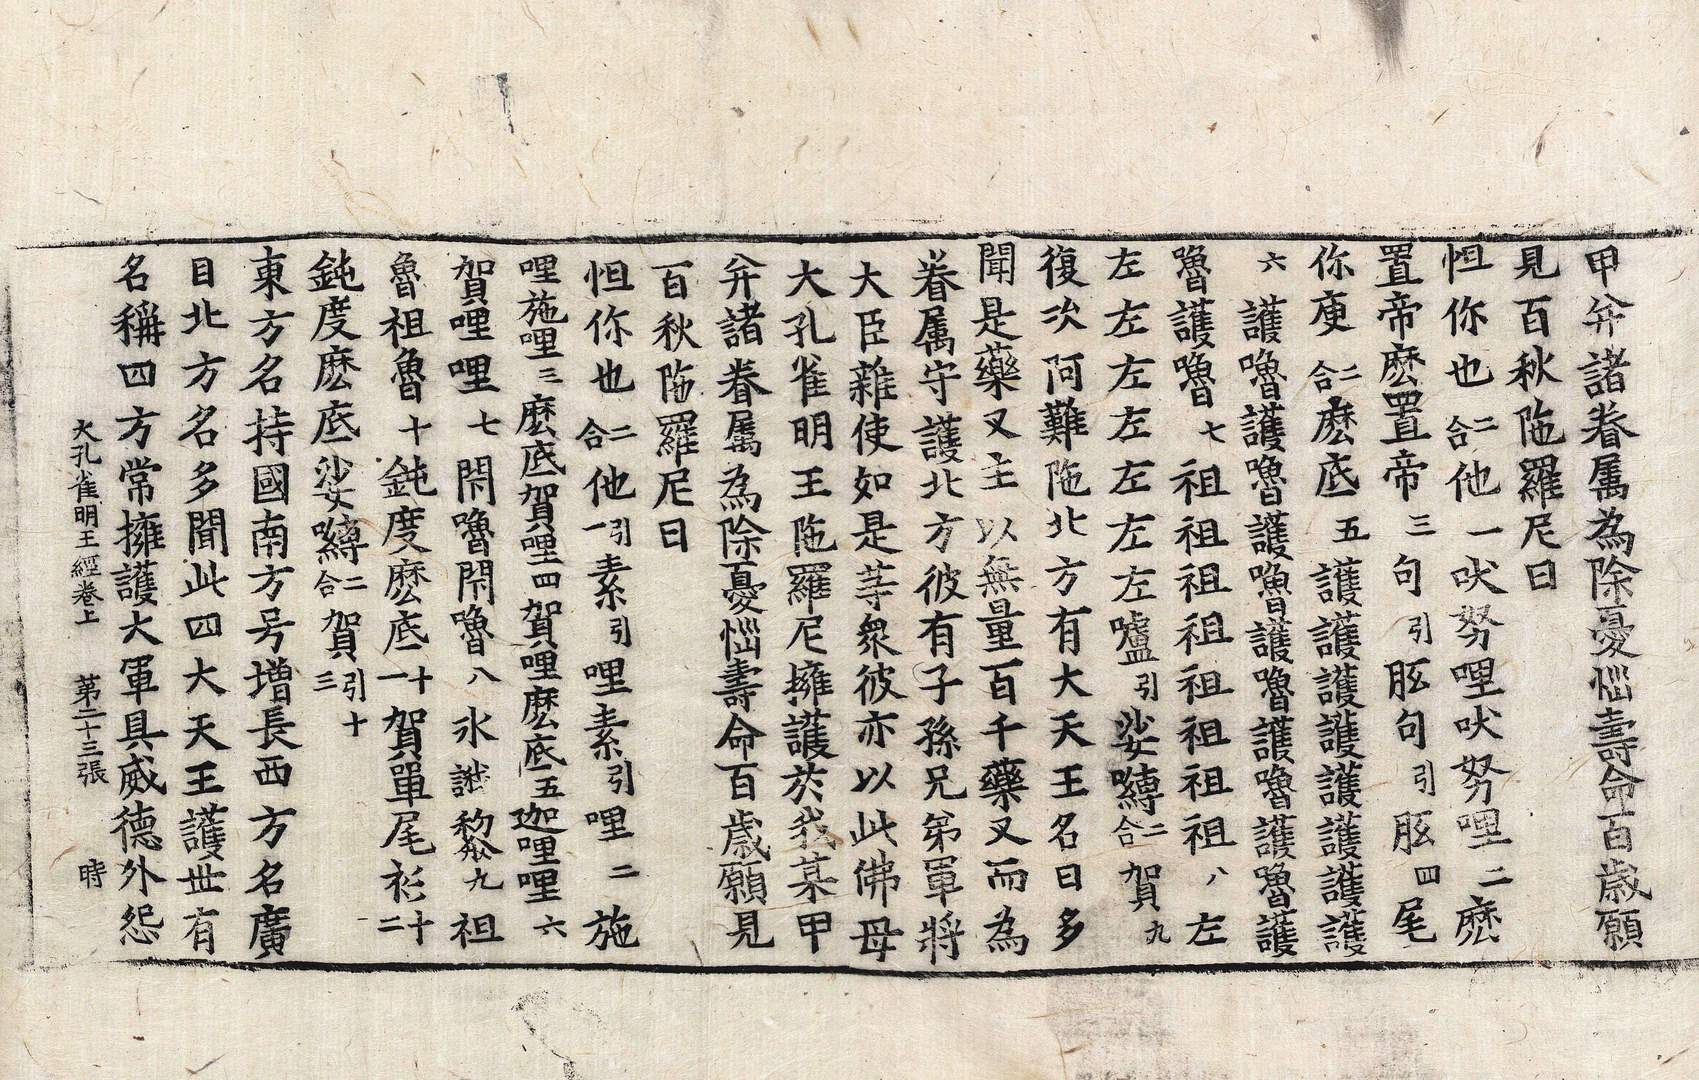 甲并諸眷属為除憂惱壽命百歲願
見百秋陁羅尼曰
怛你也二合他一吠努哩吠努哩二麽
置帝麽置帝三句引胝句引胝四尾
你庾二合麽底五護護護護護護護護
六護嚕護嚕護嚕護嚕護嚕護嚕護
嚕護嚕七祖祖祖祖祖祖祖祖八左
左左左左左左左嚧引娑嚩二合賀九
復次阿難陁北方有大天王名曰多
聞是藥叉主以無量百千藥叉而為
眷属守護北方彼有子孫兄弟軍將
大臣雜使如是等衆彼亦以此佛母
大孔雀明王陁羅尼擁護於我某甲
并諸眷屬為除憂惱壽命百歲願見
百秋陁羅尼曰
怛你也二合他引一素引哩素引哩二施
哩施哩三麽底賀哩四賀哩麽底五迦哩哩六
賀哩哩七閇嚕閇嚕八氷誐黎九祖
魯祖魯十鈍度麽底十一賀單尾衫十二
鈍度麽底娑嚩二合賀引十三
東方名持國南方号增長西方名廣
目北方名多聞此四大天王護世有
名稱四方常擁護大軍具威德外怨
大孔雀明王經卷上　第二十三張　時